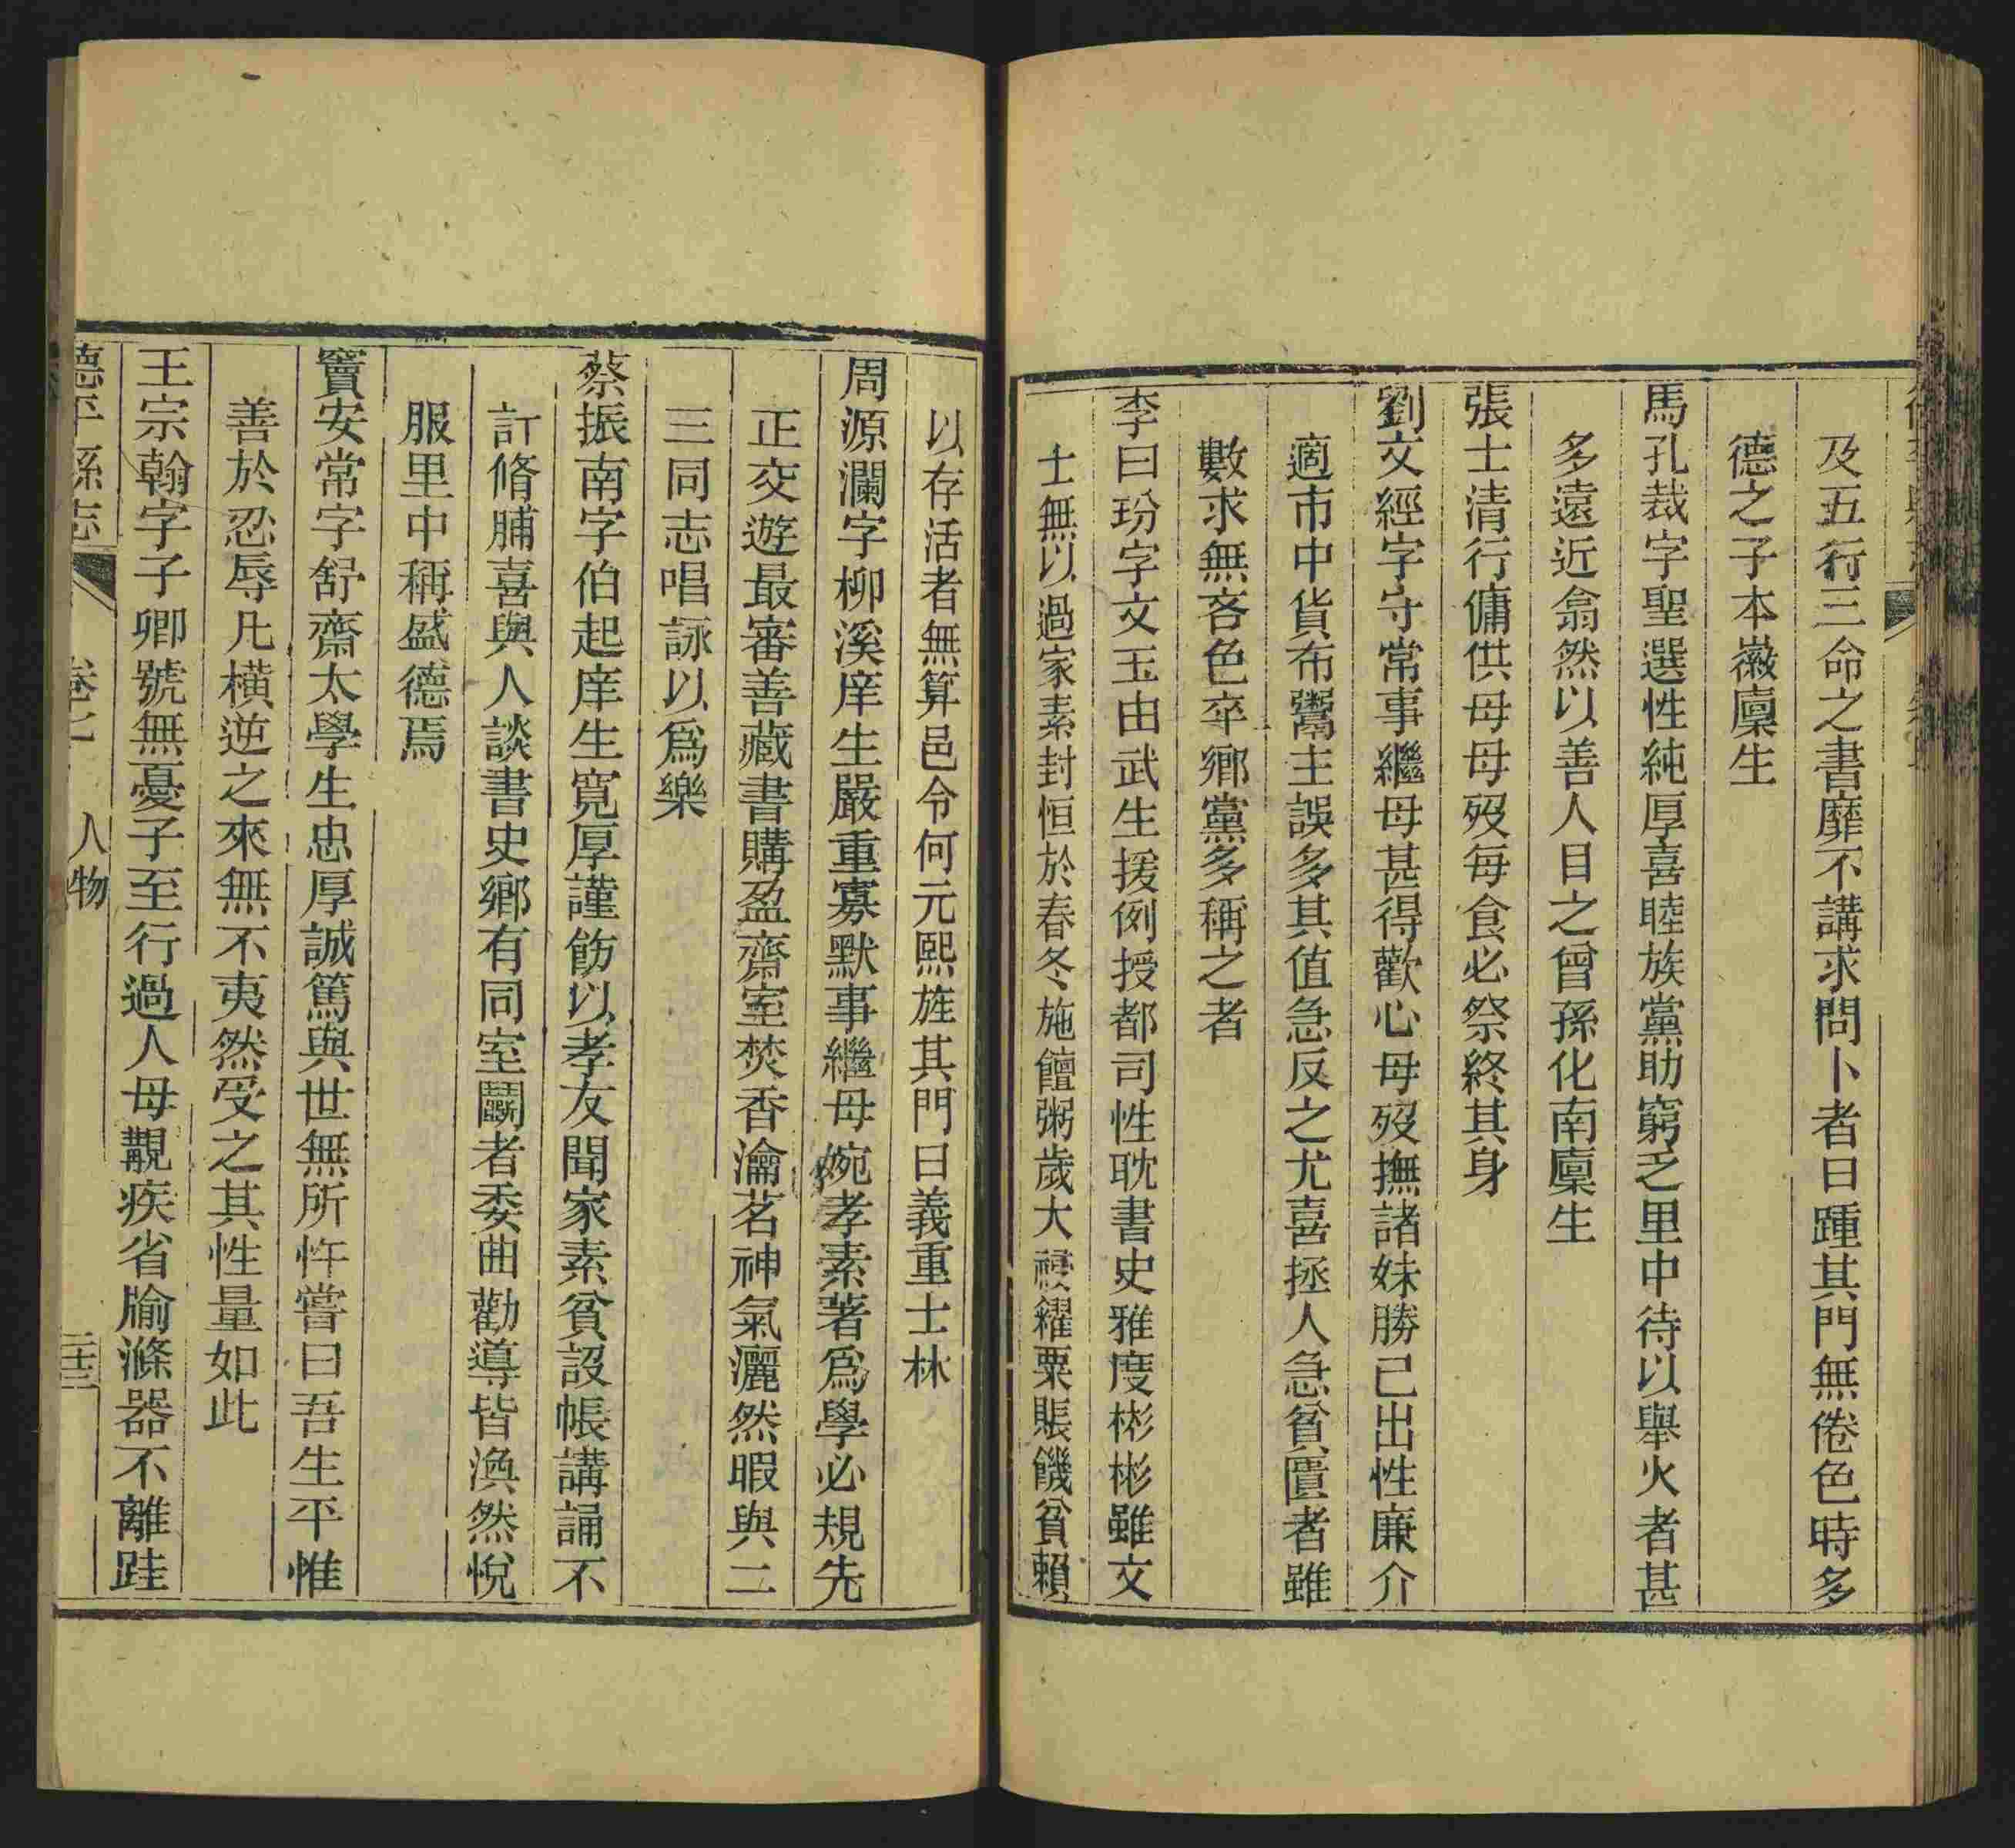 及五行三命之書靡不講求問卜者日踵其門無倦色時多
德之子本徽廩生
馬孔裁字聖選性純厚喜睦族黨助窮乏里中待以舉火者甚
多遠近翕然以善人目之曾孫化南廩生
張士清行傭供母母歿每食必祭終其身
劉文經字守常事繼母甚得歡心母歿撫諸妹勝己出性廉介
適市中貨布鬻主誤多其值急反之尤喜拯人急貧匱者雖
數求無吝色卒鄉黨多稱之者
李曰玢字文玉由武生援例授都司性耽書史雅度彬彬雖文
士無以過家素封恒於春冬施饘粥歲大祲糴粟賑饑貧賴
以存活者無算邑令何元熙旌其門曰義重士林
周源瀾字柳溪庠生嚴重寡默事繼母婉孝素著為學必規先
正交遊最審善藏書購盈齋室焚香瀹茗神氣灑然暇與二
三同志唱詠以為樂
蔡振南字伯起庠生寬厚謹飭以孝友聞家素貧設帳講誦不
計脩脯喜與人談書史鄉有同室鬬者委曲勸導皆渙然悅
服里中稱盛德焉
竇安常字舒齋太學生忠厚誠篤與世無所忤嘗曰吾生平惟
善於忍辱凡橫逆之來無不夷然受之其性量如此
王宗翰字子卿號無憂子至行過人母覯疾省牏滌器不離跬
德平縣志 卷七 人物 二十三